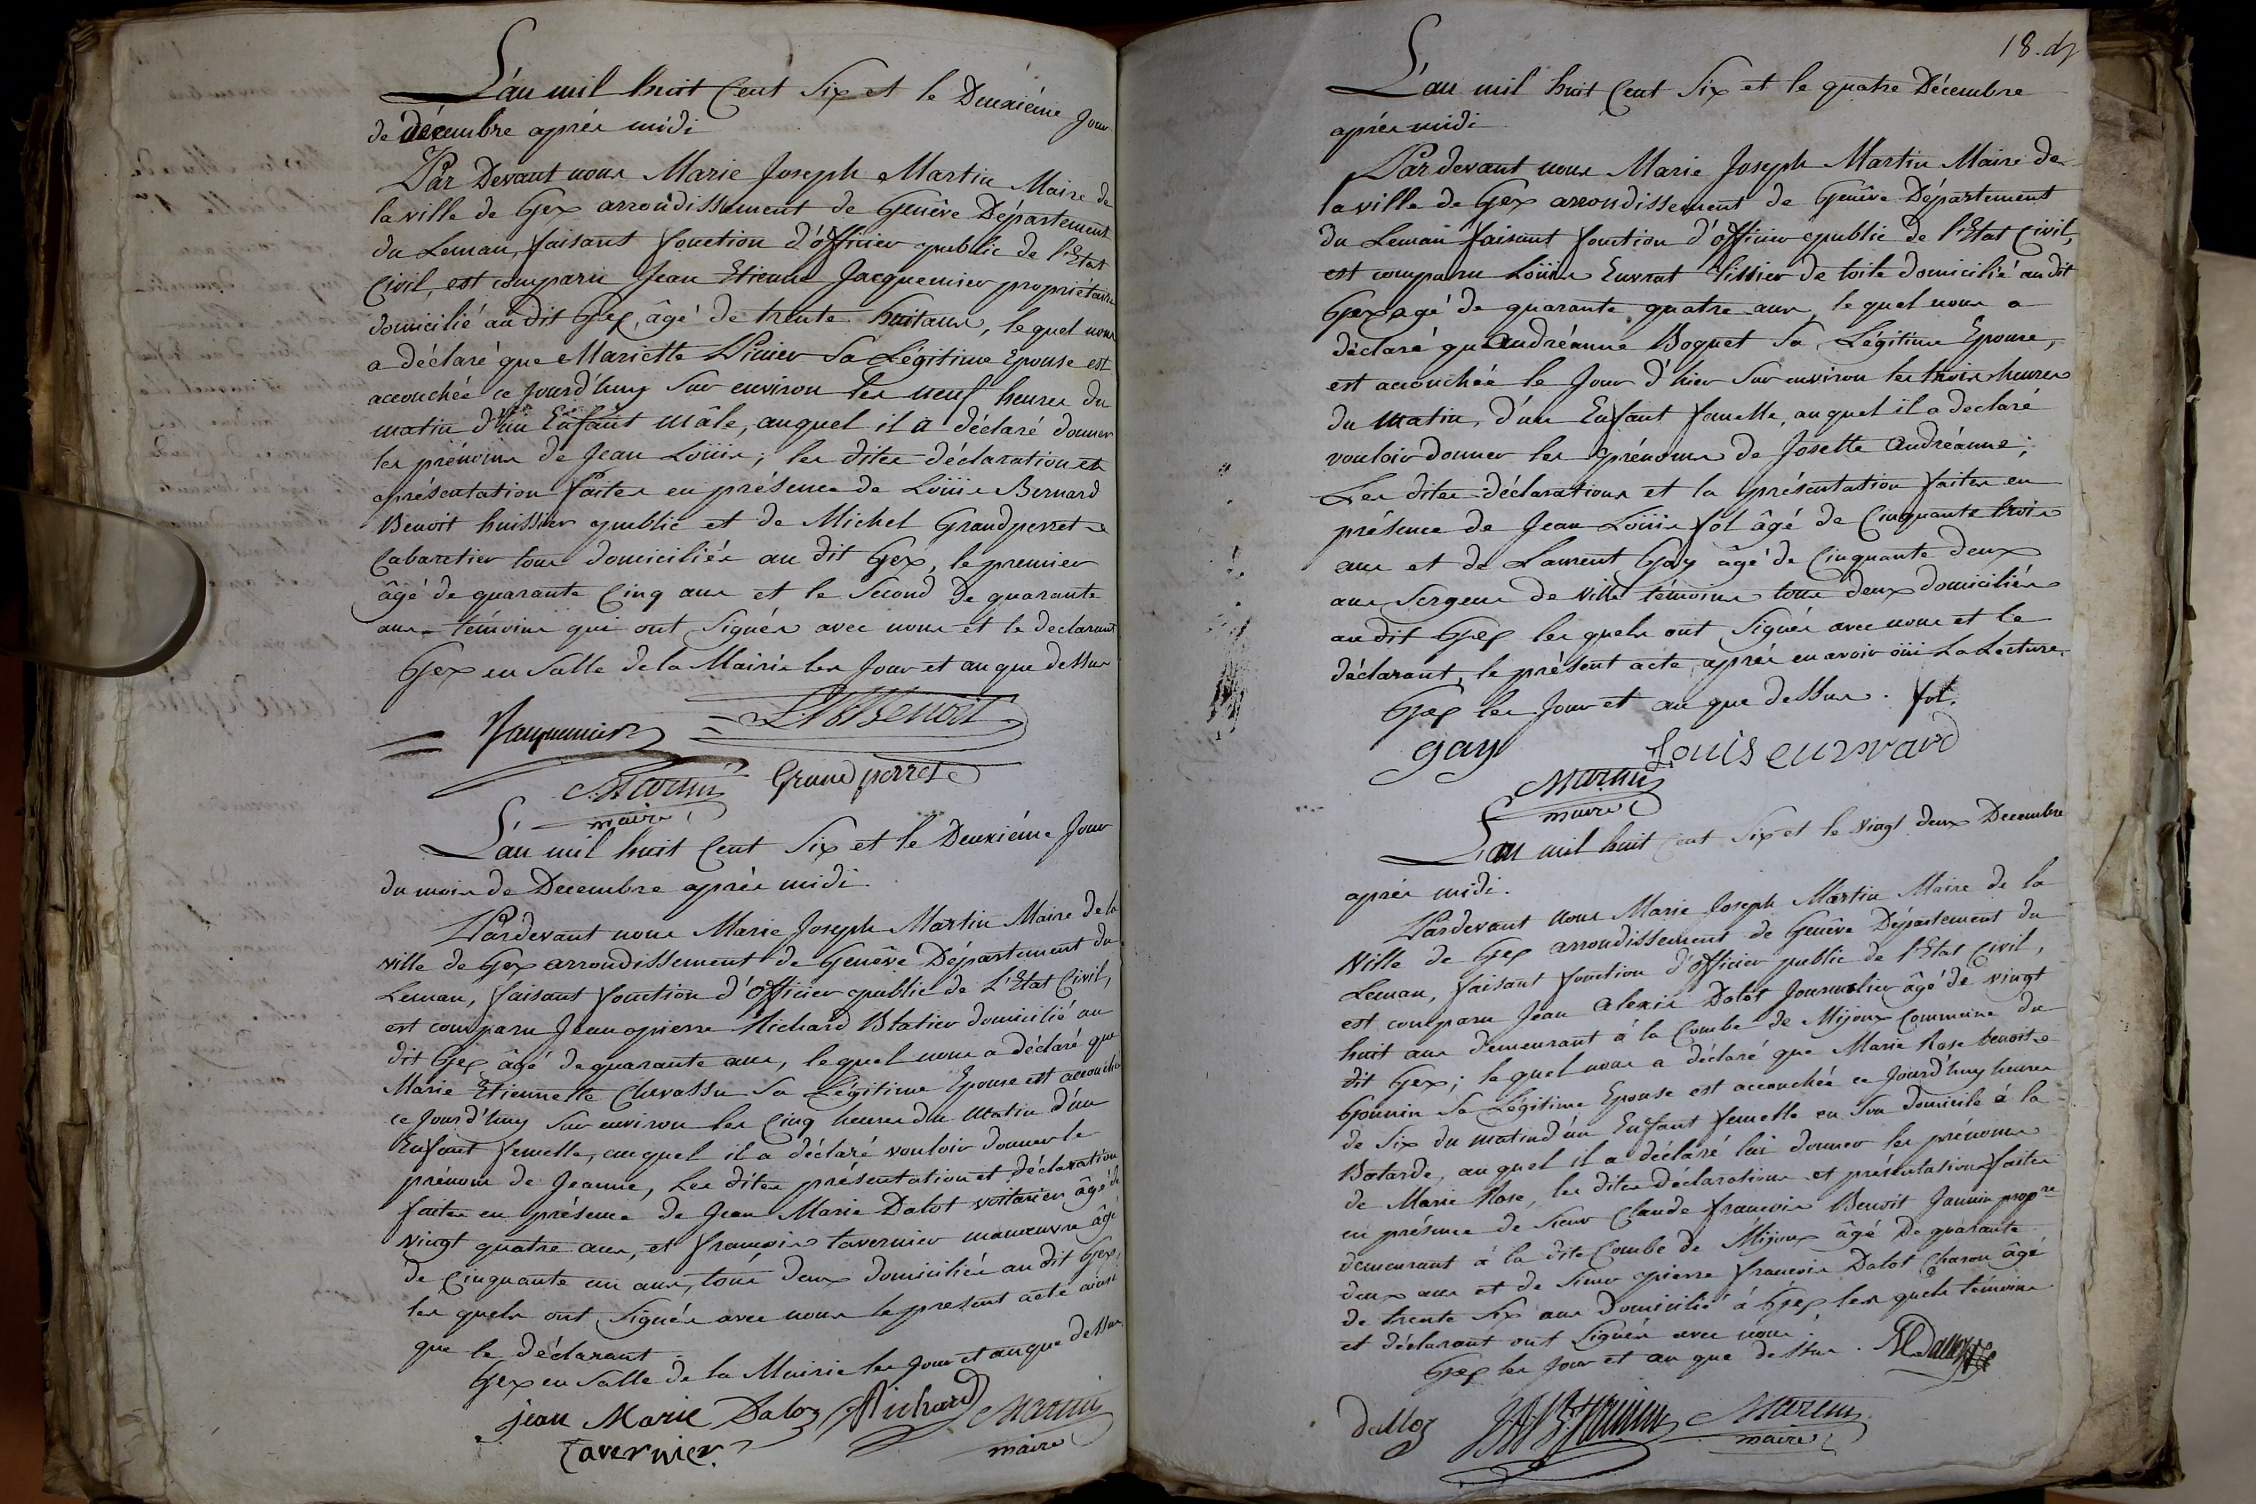 L'an mil huit Cent Six et le Deuxiéme Jour
de décembre après midi
Par Devant nous Marie Joseph Martin Maire de
la ville de Gex arrondissement de Genêve Département
du Leman, faisant fonction d'officier public de l'Etat
Civil, est comparu Jean Etienne Jacquemier propriétaire
domicilié au dit Gex, âgé de trente huit ans, le quel nous
a déclaré que Mariette Sa Légitime Epouse est
accouchée ce Jourd'huy Sur environ les neuf heures du
matin d'un Enfant mâle, auquel il a déclaré donner
les prénoms de Jean Loüis; les dites déclaration et
présentation faites en présence de Loüis Bernard
Benoit huissier public et de Michel Grandperret
Cabaretier tous domiciliés au dit Gex, le premier
âgé de quarante Cinq ans et le Second de quarante
ans témoins qui ont Signés avec nous et le declarant
Gex en Salle de la Mairie les Jour et an que dessus
Jacquemier LBBenoit
Martin Grandperret
maire
L'an mil huit Cent Six et le Deuxiéme Jour
du mois de Decembre après midi.
Pardevant nous Marie Joseph Martin Maire de la
ville de Gex arrondissement de Genêve Département du
Leman, faisant fonction d'Officier public de L'Etat Civil,
est comparu Jean pierre Richard Blatier domicilié au
dit Gex âgé de quarante ans, le quel nous a déclaré que
Marie Etiennette Chevassu Sa Légitime Epouse est accouchée
ce Jourd'huy Sur environ les Cinq heures du Matin d'un
Enfant femelle, auquel il a déclaré vouloir donner le
prénom de Jeanne, Les dites présentation et déclaration
faites en présence de Jean Marie Dalot voiturier âgé de
vingt quatre ans, et françois tavernier manœuvre âgé
de Cinquante un ans, tous deux domiciliés au dit Gex,
les quels ont Signés avec nous le present acte ainsi
que le déclarant.
Gex en Salle de la Mairie les Jour et an que dessus.
jean Marie Daloz Richard Martin
tavernier. maire
18.
L'an mil huit Cent Six et le quatre Décembre
après midi
Pardevant nous Marie Joseph Martin Maire de
la ville de Gex arrondissement de Genêve Département
du Leman faisant fonction d'officier public de l'Etat Civil,
est comparu Loüis Euvrat tissier de toile domicilié au dit
Gex agé de quarante quatre ans, le quel nous a
déclaré qu'Andréanne Boguet Sa Légitime Epouse,
est accouchée le Jour d'hier Sur environ les trois heures
du Matin, d'un Enfant femelle, auquel il a declaré
vouloir donner les prénoms de Josette Andréanne;
Les dites déclarations et la présentation faites en
présence de Jean Loüis fol âgé de Cinquante trois
ans et de Laurent Gay âgé de Cinquante deux
ans Sergens de ville témoins tous deux domiciliés
au dit Gex les quels ont Signés avec nous et le
déclarant, le présent acte, après en avoir oüi La Lecture.
Gex les Jour et an que dessus. fol.
gay Louis euvrard
Martin
maire
L'an mil huit Cent Six et le vingt deux Decembre
après midi.
Pardevant nous Marie Joseph Martin Maire de la
Ville de Gex arrondissement de Genêve Département du
Leman, faisant fonction d'officier public de l'Etat Civil,
est comparu Jean Alexis Dalot Journalier âgé de vingt
huit ans demeurant à la Combe de Mijoux Commune du
dit Gex; le quel nous a déclaré que Marie Rose benoite
Gounin Sa Légitime Epouse est accouchée ce Jourd'huy heures
de Six du matin d'un Enfant femelle en Son domicile à la
Batarde, auquel il a déclaré lui donner les prénoms
de Marie Rose, les dites déclarations et présentations faites
en présence de Sieur Claude françois Benoit Jannin propre
demeurant à la dite Combe de Mijoux âgé de quarante
deux ans et de Sieur pierre françois Dalot Charon âgé
de trente Six ans Domicilié à Gex les quels témoins
et déclarant ont Signés avec nous.
Gex les Jour et an que dessus.
dalloz Martin
maire